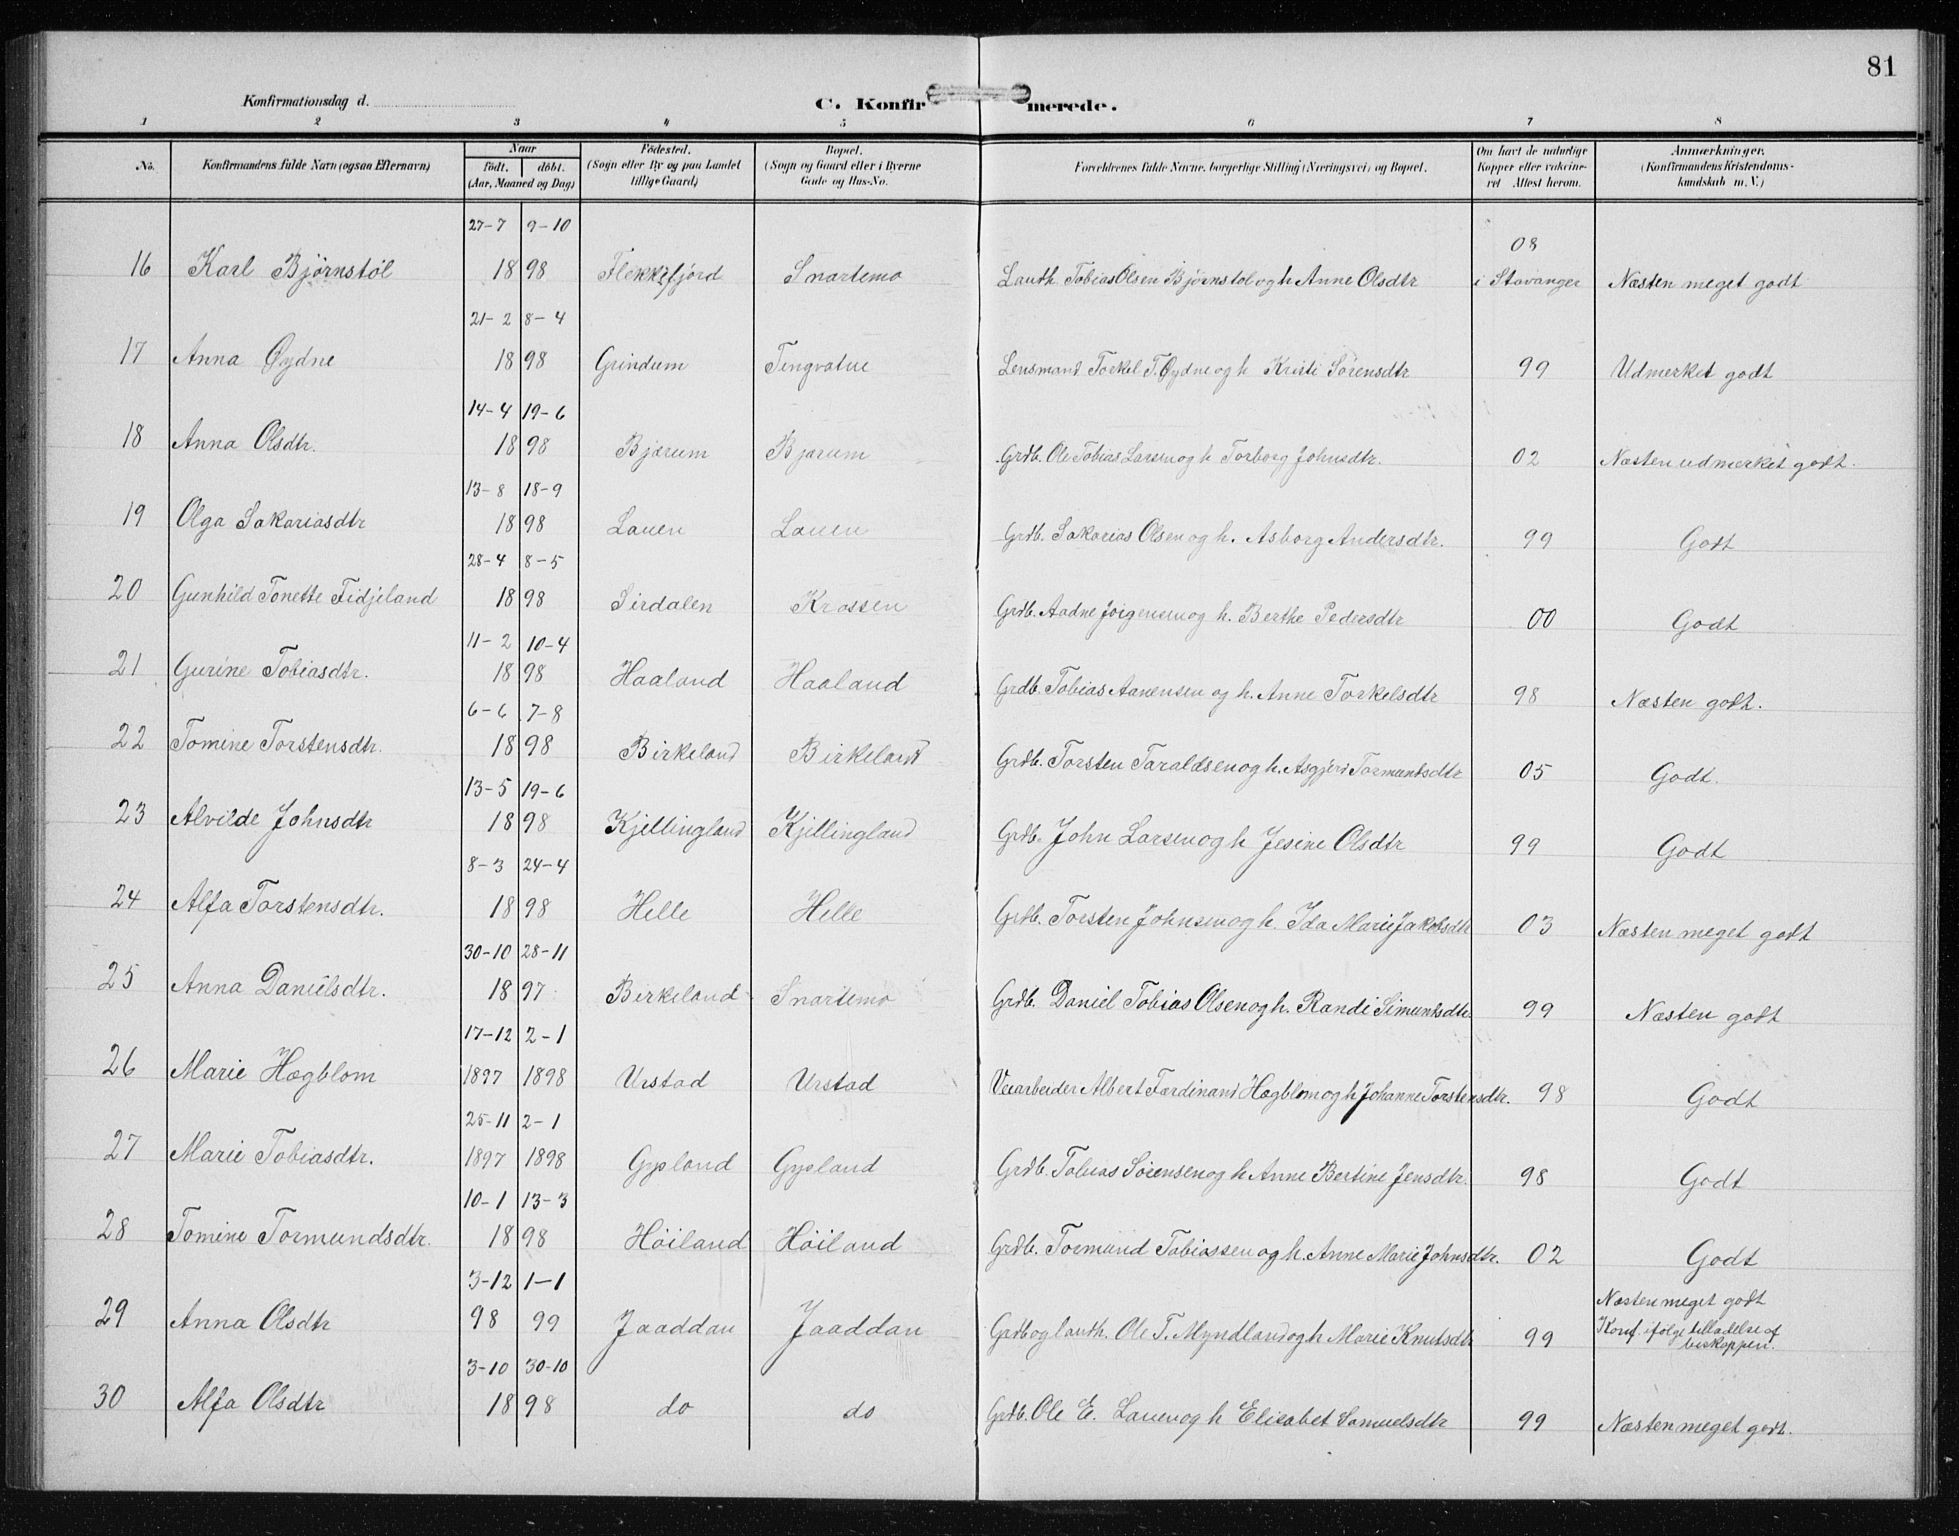 81
Konfirmationsdag d.
C. Konfirmerede.
1 2 3 4 5 6 7 8
No. Konfirmandens fulde Navn (ogsaa Efternavn) Naar født. døbt. (Aar, Maaned og Dag) Fødested. (Sogn eller By og paa Landet tillige Gaard) Bopæl. (Sogn og Gaard eller i Byerne Gade og Hus-No. Forældrenes fulde Navne, borgerlige Stilling (Næringsvei) og Bopæl. Om havt de naturlige Kopper eller vakcineret Attest herom. Anmærkninger. (Konfirmandens Kristendomskundskab m. V.)
27-7 9-10 08
16 Karl Bjørnstøl 1898 Flekkefjord Snartemo Lauth. Tobias Olsen Bjørnstøl og h Anne Olsdtr i Stavanger Næsten meget godt
21-2 8-4
17 Anna Øydne 1898 Grindum Tingvatne Lensmand Torkel T. Øydne og h Kristi Sörensdtr 99 Udmerket godt
14-4 19-6
18 Anna Olsdtr. 1898 Bjærum Bjærum Grdb. Ole Tobias Larsen og h Torborg Johnsdtr. 02 Næsten udmerket godt.
13-8 18-9
19 Olga Sakariasdtr 1898 Lauen Lauen Grdb. Sakarias Olsen og h. Asborg Andersdtr. 99 Godt
28-4 8-5
20 Gunhild Tonette Fidjeland 1898 Sirdalen Krossen Grdb. Aadne Jörgensen og h. Berthe Pedersdtr 00 Godt
11-2 10-4
21 Gurine Tobiasdtr. 1898 Haaland Haaland Grdb. Tobias Aanensen og h. Anne Torkelsdtr 98 Næsten godt.
6-6 7-8
22 Tomine Torstensdtr. 1898 Birkeland Birkeland Grdb. Torsten Taraldsen og h. Asgjerd Tormundsdtr 05 Godt.
13-5 19-6
23 Alvilde Johnsdtr 1898 Kjellingland Kjellingland Grdb. John Larsen og h Jesine Olsdtr 99 Godt
8-3 24-4
24 Alfa Torstensdtr. 1898 Helle Helle Grdb. Torsten Johnsen og h. Ida Marie Jakobsdtr 03 Næsten meget godt
30-10 28-11
25 Anna Danielsdtr. 1897 Birkeland Snartemo Grdb. Daniel Tobias Olsen og h. Randi Simundsdtr 99 Næsten godt
17-12 2-1
26 Marie Hægblom 1897 1898 Urstad Urstad Veiarbeider Albert Ferdinand Hægblom og h Johanne Torstensdtr. 98 Godt
25-11 2-1
27 Marie Tobiasdtr. 1897 1898 Gysland Gysland Grdb. Tobias Sörensen og h Anne Bertine Jensdtr. 98 Godt
10-1 13-3
28 Tomine Tormundsdtr. 1898 Höiland Höiland Grdb. Tormund Tobiassen og h. Anne Marie Johnsdtr. 02 Godt
3-12 1-1 Næsten meget godt
29 Anna Olsdtr 98 99 Jaaddan Jaaddan Grdb og lauth. Ole T. Myndland og h Marie Knutsdtr 99 Konf. ifölge tilladelse af
biskoppen.
3-10 30-10
30 Alfa Olsdtr 1898 do do Grdb. Ole E. Lauen og h Elisabet Samuelsdtr 99 Næsten meget godt.